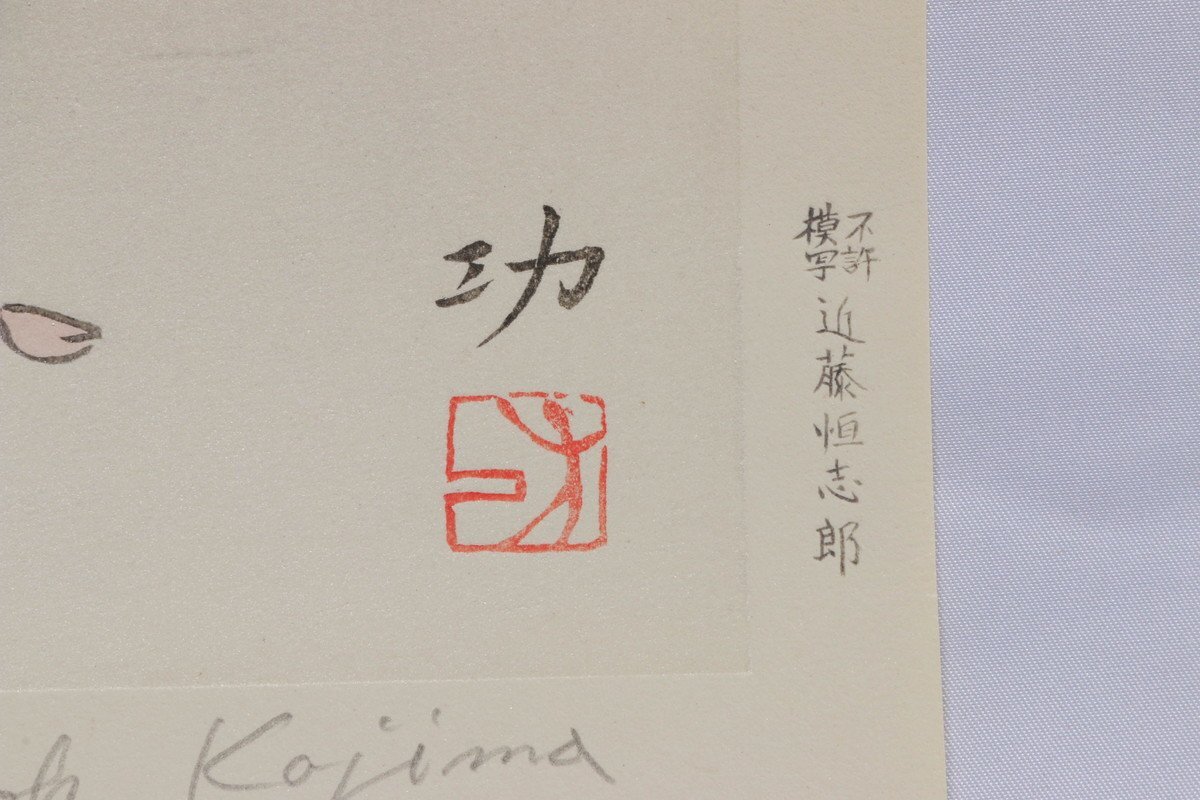 功
不許
模写
近藤恒志郎
Kojima